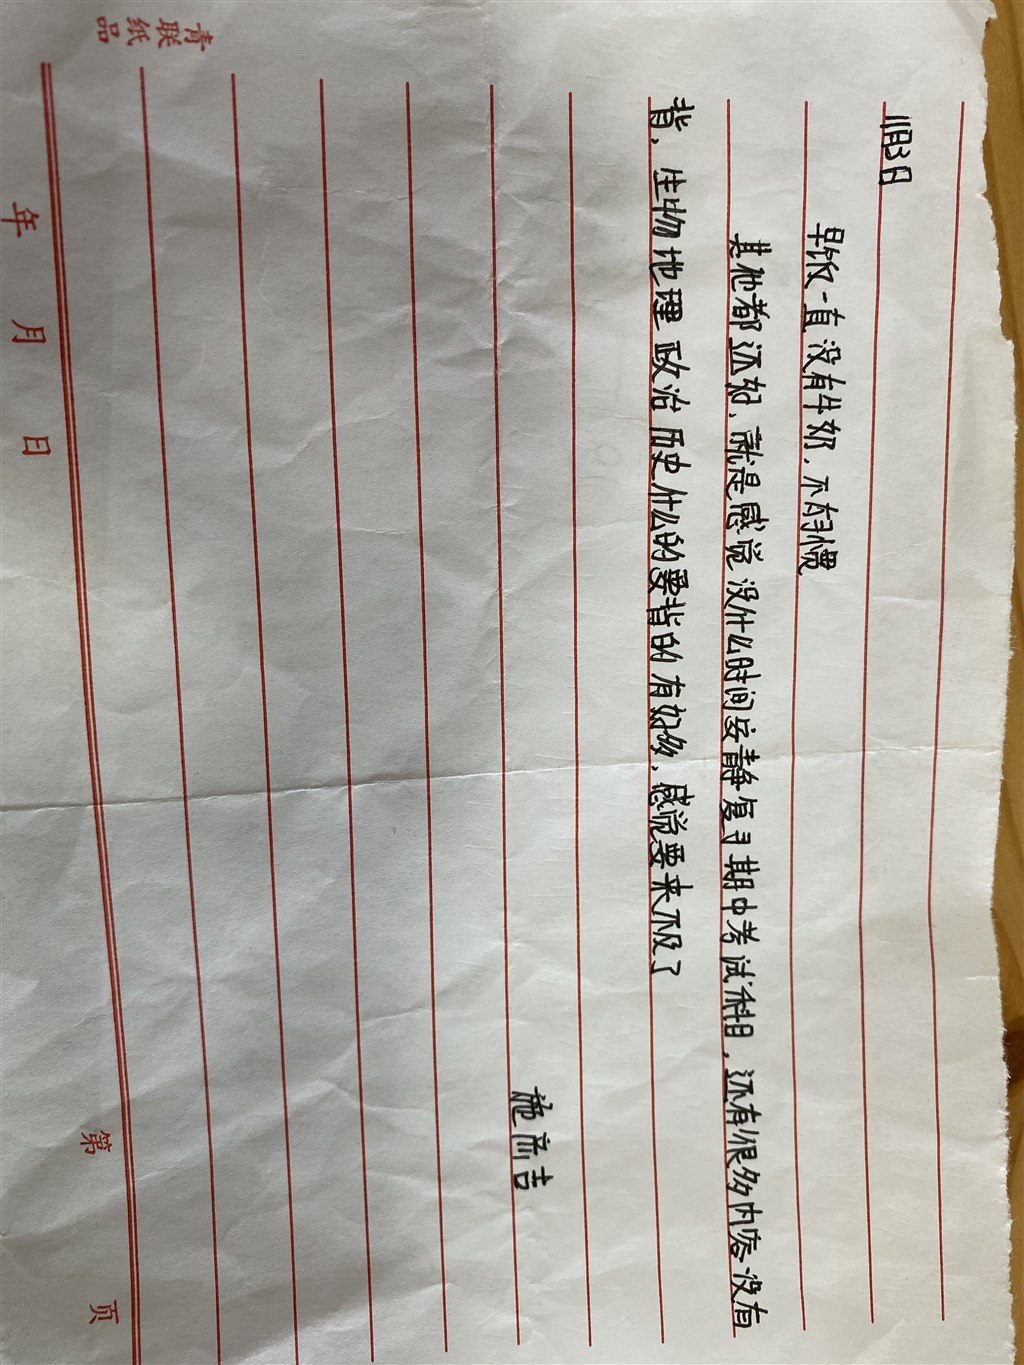 11月3日
早饭一直没有牛奶，不太习惯
其他都还好，就是感觉没什么时间安静复习期中考试科目，还有很多内容没有
背，生物地理政治历史什么的要背的有好多，感觉要来不及了
施彦吉
青联纸品
年 月 日 第 页